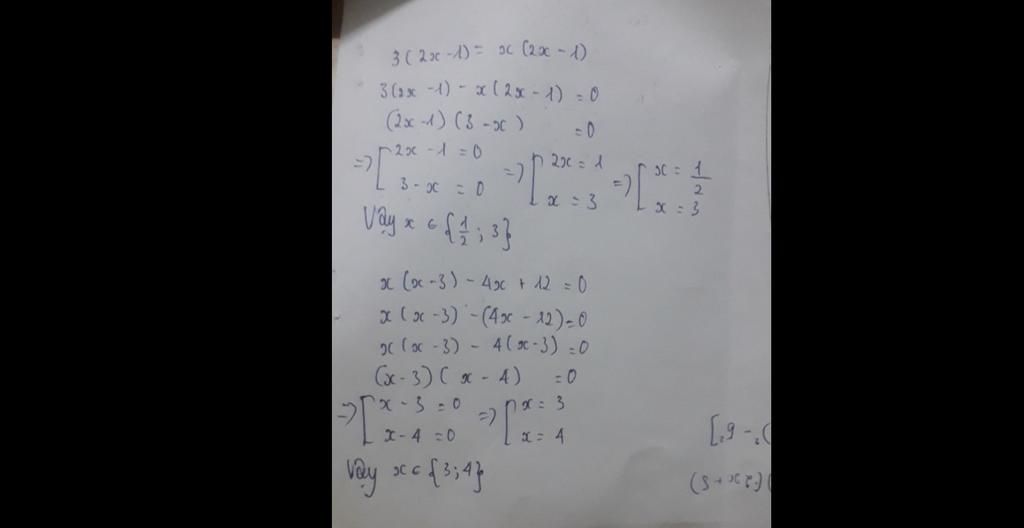 3(2x-1) = x(2x-1)
3(2x-1) - x(2x-1) = 0
(2x-1)(3-x) = 0
=> [ 2x-1 = 0 => [ 2x = 1 => [ x = 1/2
3-x = 0 x = 3 x = 3
Vậy x ∈ {1/2; 3}
x(x-3) - 4x + 12 = 0
x(x-3) - (4x-12) = 0
x(x-3) - 4(x-3) = 0
(x-3)(x-4) = 0
=> [ x-3 = 0 => [ x = 3
x-4 = 0 x = 4
Vậy x ∈ {3; 4}